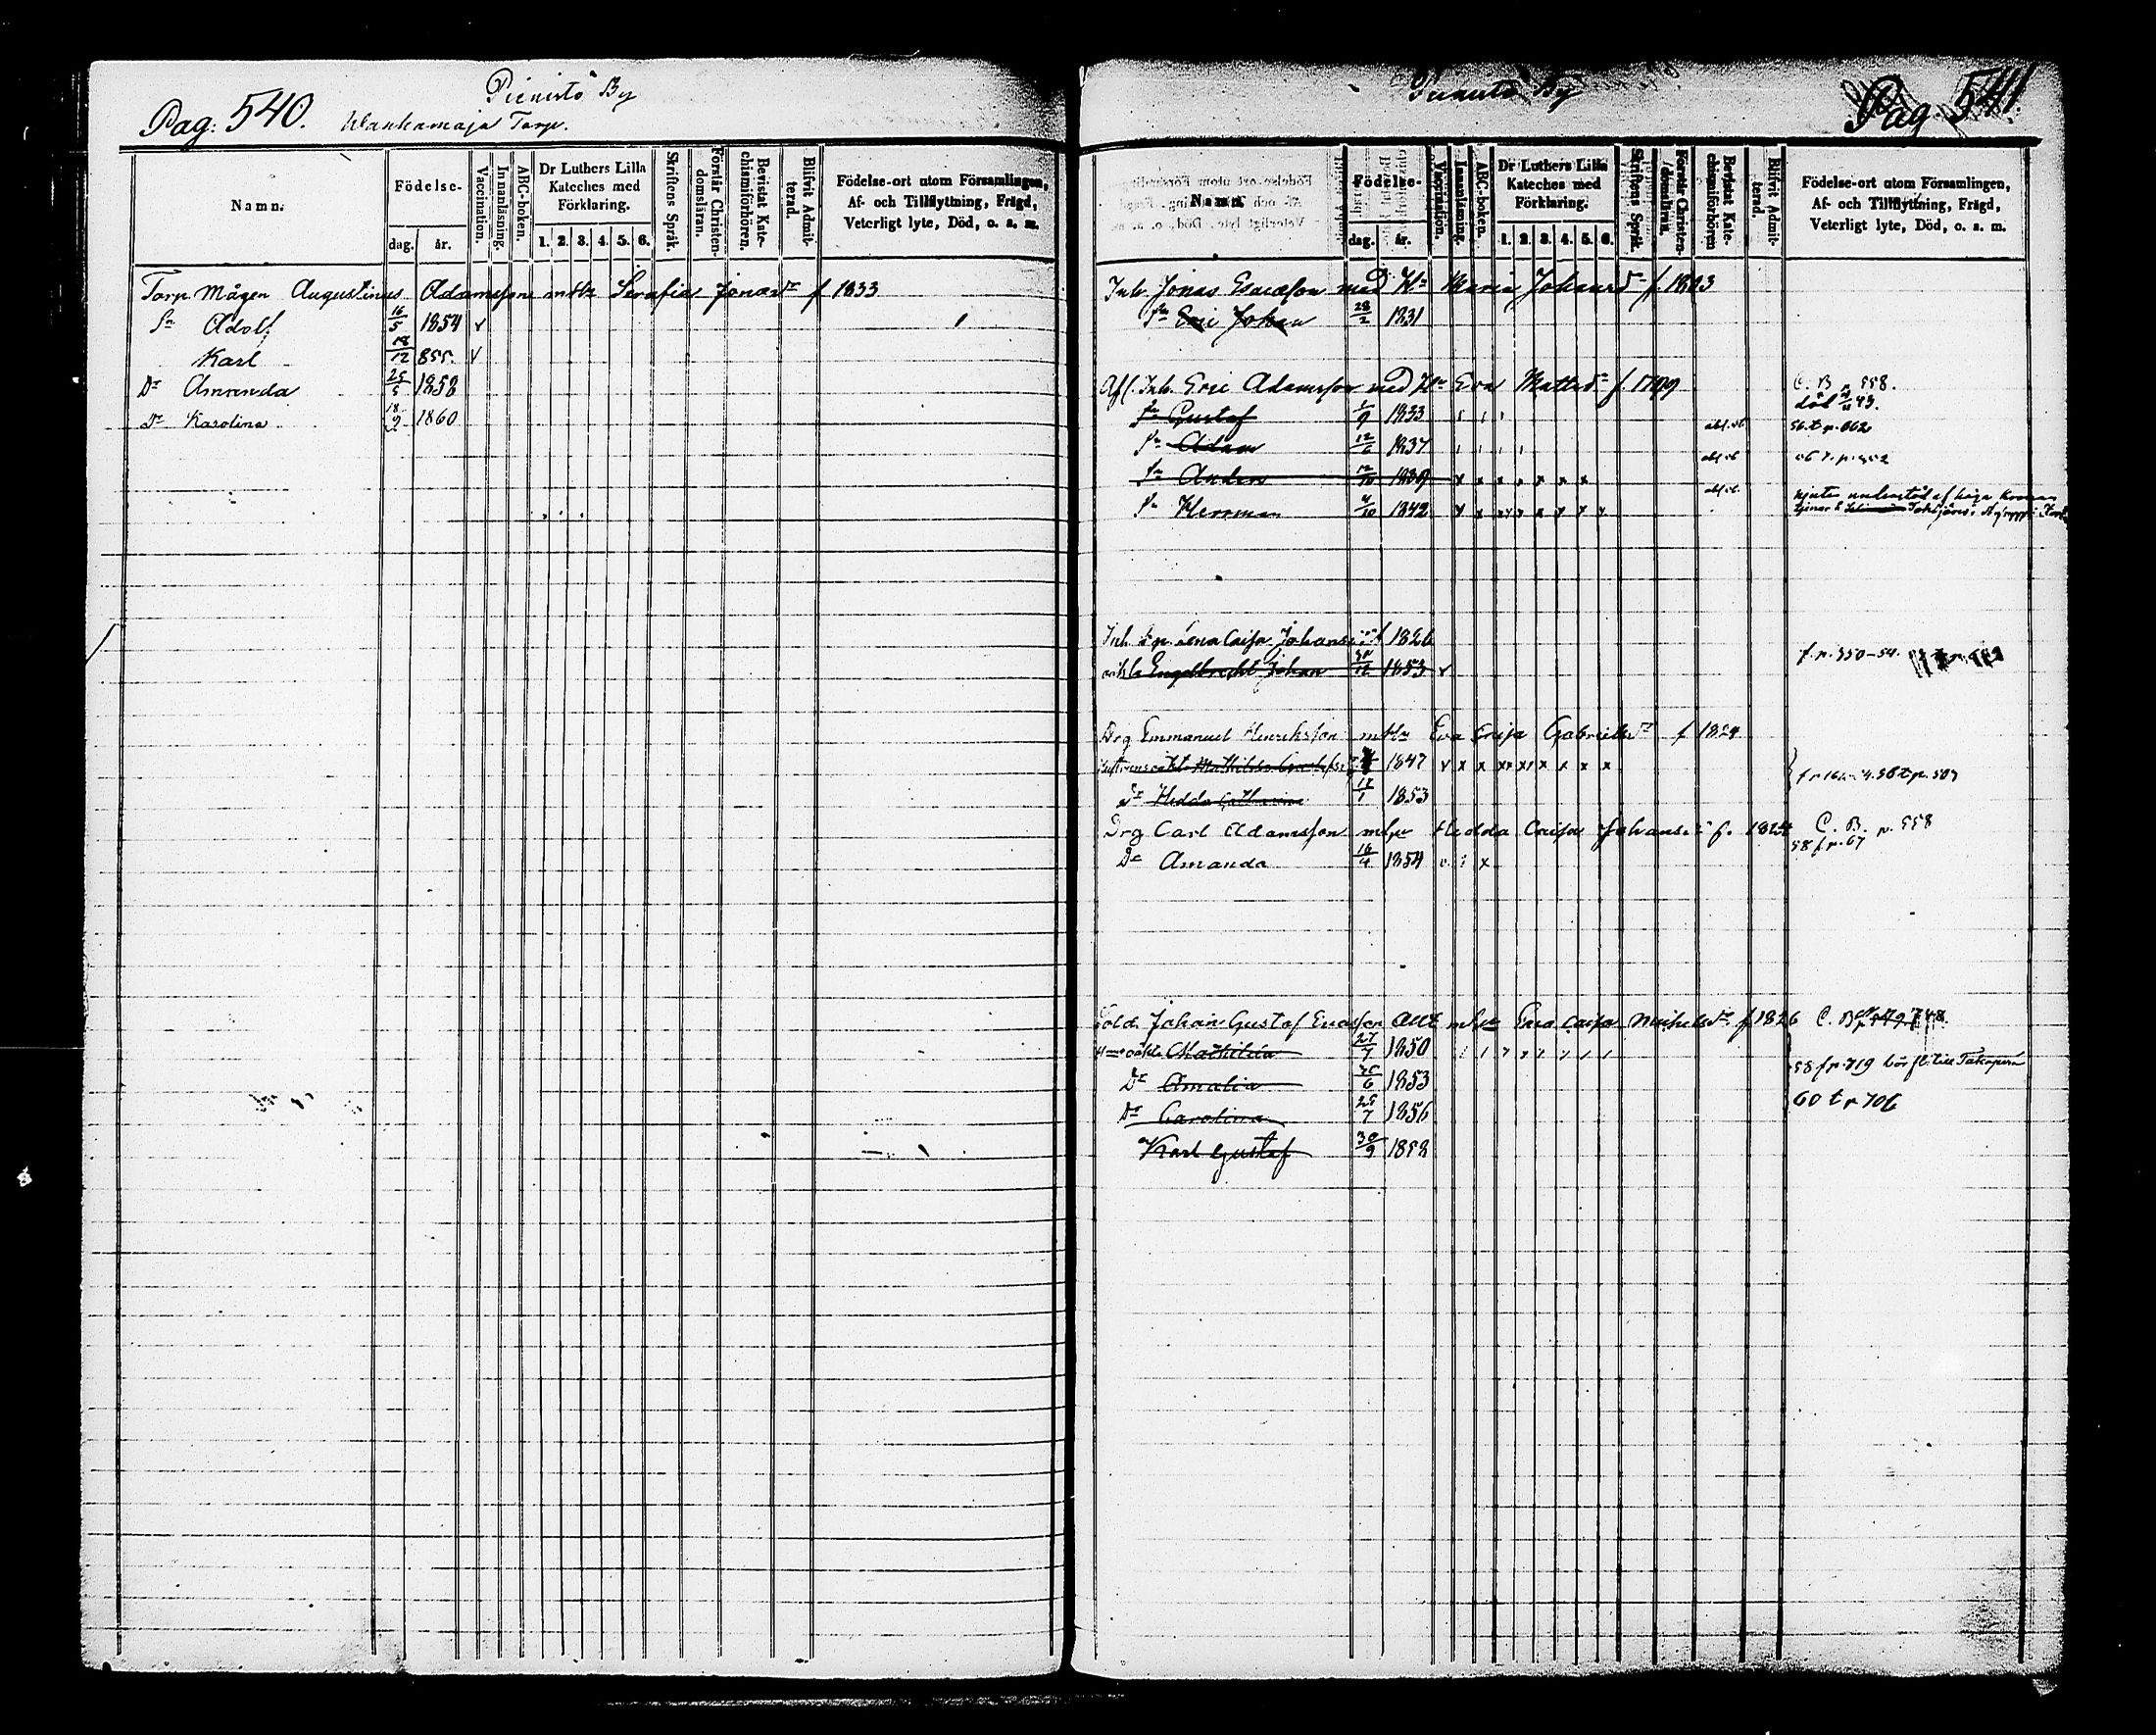 Pienistö By
Pag. 540. Wanhamaja Torp.
Namn.
Födelse-
dag. år.
Vaccination.
Innanläsning.
ABC-boken.
Dr Luthers Lilla
Kateches med
Förklaring.
1. 2. 3. 4. 5. 6.
Skriftens Språk.
Förstår Christen-
domsläran.
Bevistat Kate-
chismiförhören.
Blifvit Admit-
terad.
Födelse-ort utom Församlingen,
Af- och Tillflyttning, Frägd,
Veterligt lyte, Död, o. s. m.
Torp. Mågen Augustinus Adamsson m Hu Serafia Jonasdr f 1833
Sn Adolf 16/5 1854 v
Karl 18/12 855. v
Dr Amanda 25/5 1858
Dr Karolina 18/9 1860
By
Pag. 541.
Namn.
Födelse-
dag. år.
Vaccination.
Innanläsning.
ABC-boken.
Dr Luthers Lilla
Kateches med
Förklaring.
1. 2. 3. 4. 5. 6.
Skriftens Språk.
Förstår Christen-
domsläran.
Bevistat Kate-
chismiförhören
Blifvit Admit-
terad.
Födelse-ort utom Församlingen,
Af- och Tillflyttning, Frägd,
Veterligt lyte, Död, o. s. m.
Inh. Jonas med Hu Maria Johansdr f. 1803
Sn Eric Johan 28/2 1831
Afl. Inh. Eric Adamsson med Hu Eva Mattsdr f. 1799 C. B. p. 558.
Sn Gustaf 1/9 1833
Sn Adam 12/6 1837
Sn Anders 12/10 1839 x x x x x x x
Sn Herrman 4/10 1842
Inh. Lena Caisa Johans f 1826
Engelbrecht Johan 1853 v f. p. 350-54.
Drg Emmanuel Henriksson m Hu Eva Caisa Gabrielsdr f 1824
1847
Dr Hedda Catharina 17/1 1853
Drg Carl Adamsson m hu Hedda Caisa Johans f. 1824 C. B. p. 558
58 f p. 67
Dr Amanda 16/4 1854
Sold. Johan Gustaf Ericsson m hu Caisa Michelsdr f 1826
Mathilda 27/7 1850
Dr Amalia 6 1853
Dr Carolina 25/7 1856 60 t p 706
Karl Gustaf 30/9 1858